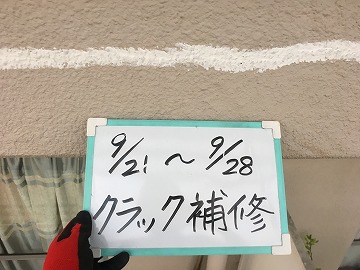 9/21 〜 9/28
クラック補修